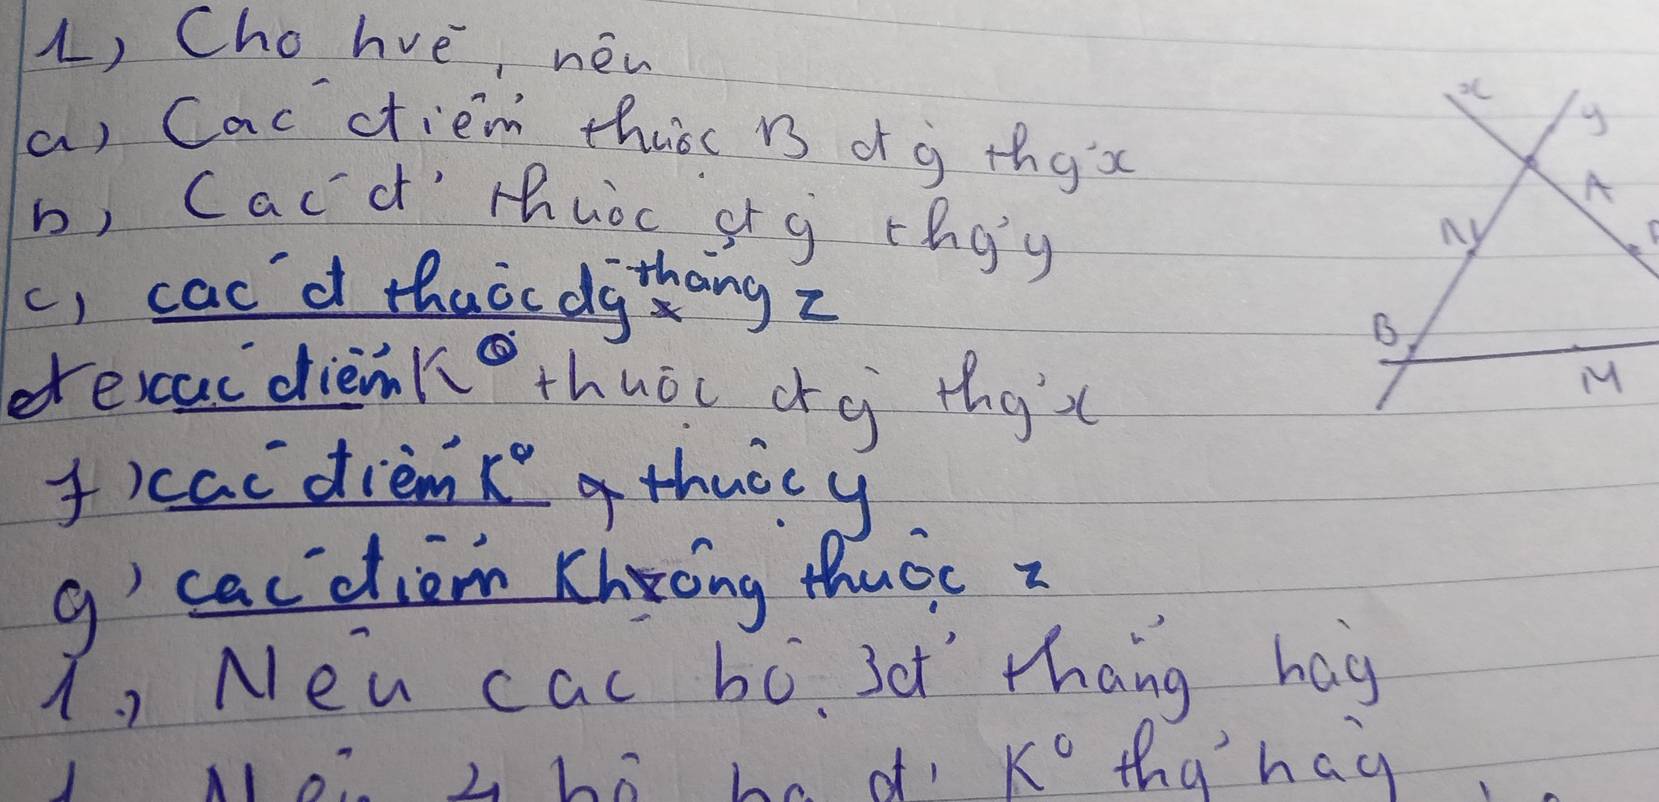 1, Cho hvẽ, nêu
a) Các điểm thuộc đg thg x
b, Các đ' thuộc đg thg y
c, các đ thuộc đg thẳng z
e, các điểm K° thuộc đg thg x
f) các điểm K° thuộc y
g) các điểm Không thuộc z
1, Nêu các bộ 3đ' thẳng hàg
Nêu 4 bộ ba đ' K° thg hàg
x
y
A
N
B
M